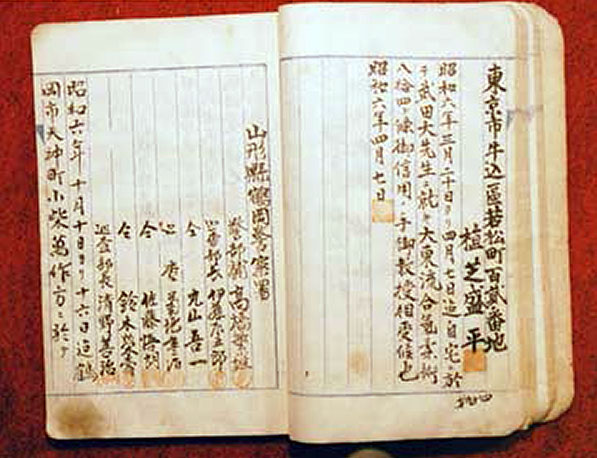 東京市牛込區若松町百貳番地
植芝盛平
昭和六年三月二十日ヨリ四月七日迄自宅ニ於
テ武田大先生ニ就キ大東流合氣柔術
八拾四ヶ條御信用ノ手御教授相受候也
昭和六年四月七日
山形縣鶴岡警察署
警部補 高橋
巡査部長 伊藤
仝 丸山喜一
巡査 菊地
仝 佐藤
仝 鈴木
巡査部長 清野
昭和六年十月十日ヨリ十六日迄鶴
岡市天神町小柴萬作方ニ於テ